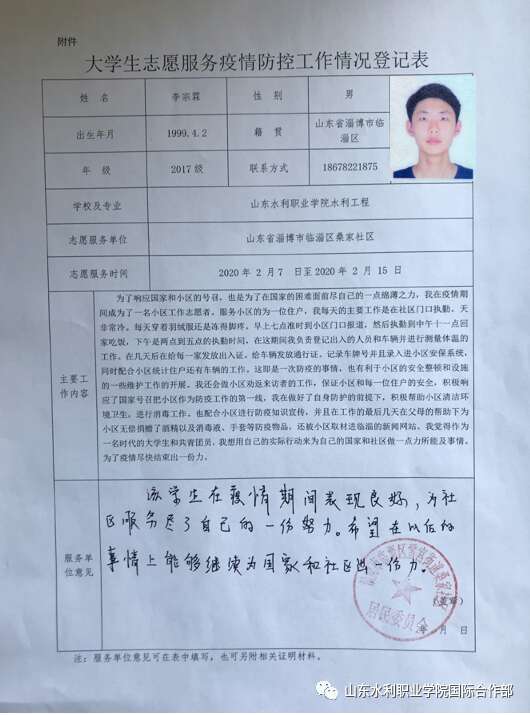 附件
大学生志愿服务疫情防控工作情况登记表
姓 名 李宗霖 性 别 男
出生年月 1999.4.2 籍 贯 山东省淄博市临淄区
年 级 2017级 联系方式 18678221875
学校及专业 山东水利职业学院水利工程
志愿服务单位 山东省淄博市临淄区桑家社区
志愿服务时间 2020 年 2 月 7 日至 2020 年 2 月 15 日
主要工作内容
为了响应国家和小区的号召，也是为了在国家的困难面前尽自己的一点绵薄之力，我在疫情期
间成为了一名小区工作志愿者，服务小区的为一位住户，我每天的主要工作是在社区门口执勤，天
非常冷，每天穿着羽绒服还是冻得脚疼，早上七点准时到小区门口报道，然后执勤到中午十一点回
家吃饭，下午是两点到五点的执勤时间，在这期间我负责登记出入的人员和车辆并进行测量体温的
工作。在几天后在给每一家发放出入证，给车辆发放通行证，记录车牌号并且录入进小区安保系统，
同时配合小区统计住户还有车辆的工作。这即是一次防疫的事情，也有利于小区的安全整顿和设施
的一些维护工作的开展。我还会做小区劝返来访者的工作，保证小区和每一位住户的安全，积极响
应了国家号召把小区作为防疫工作的第一线，我在做好了自身防护的前提下，积极帮助小区清洁环
境卫生，进行消毒工作。也配合小区进行防疫知识宣传，并且在工作的最后几天在父母的帮助下为
小区无偿捐赠了酒精以及消毒液、手套等防疫物品，还被小区取材进临淄的新闻网站。我觉得作为
一名时代的大学生和共青团员，我想用自己的实际行动来为自己的国家和社区做一点力所能及事情。
为了疫情尽快结束出一份力。
服务单位意见
该学生在疫情期间表现良好，为社
区服务尽了自己的一份努力。希望在以后的
事情上能够继续为国家和社区出一份力。
（盖章）
居民委员会
年 月 日
注：服务单位意见可在表中填写，也可另附相关证明材料。
山东水利职业学院国际合作部